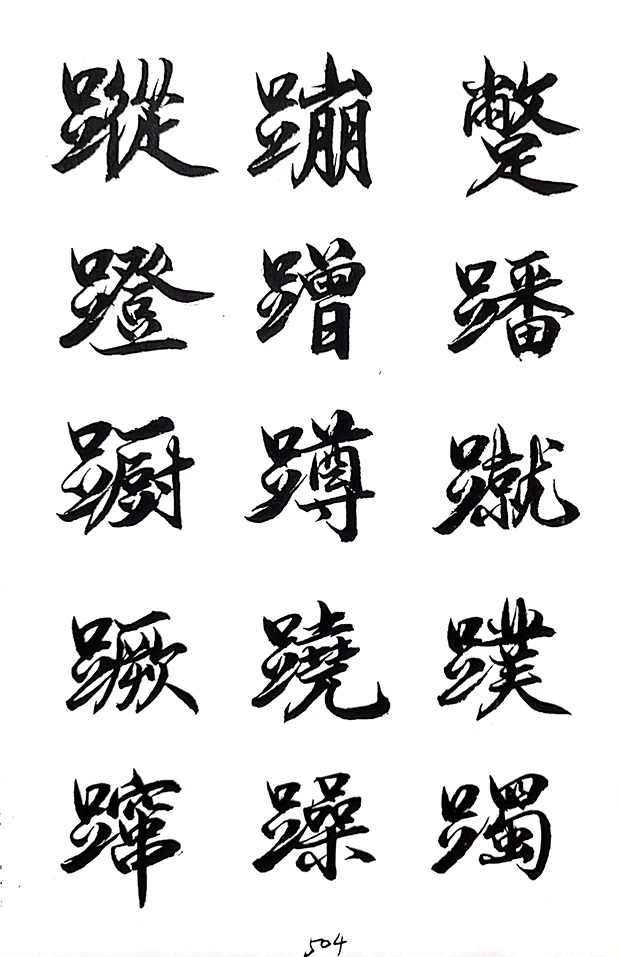 蹤 蹦 蹩
蹬 蹭 蹯
蹰 蹲 蹴
蹶 蹺 蹼
躥 躁 躅
504